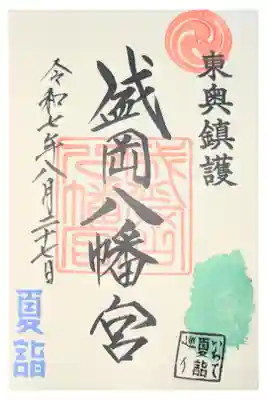 東奥鎮護
盛岡八幡宮
令和七年八月二十七日
夏詣
いわて
夏詣
巡り